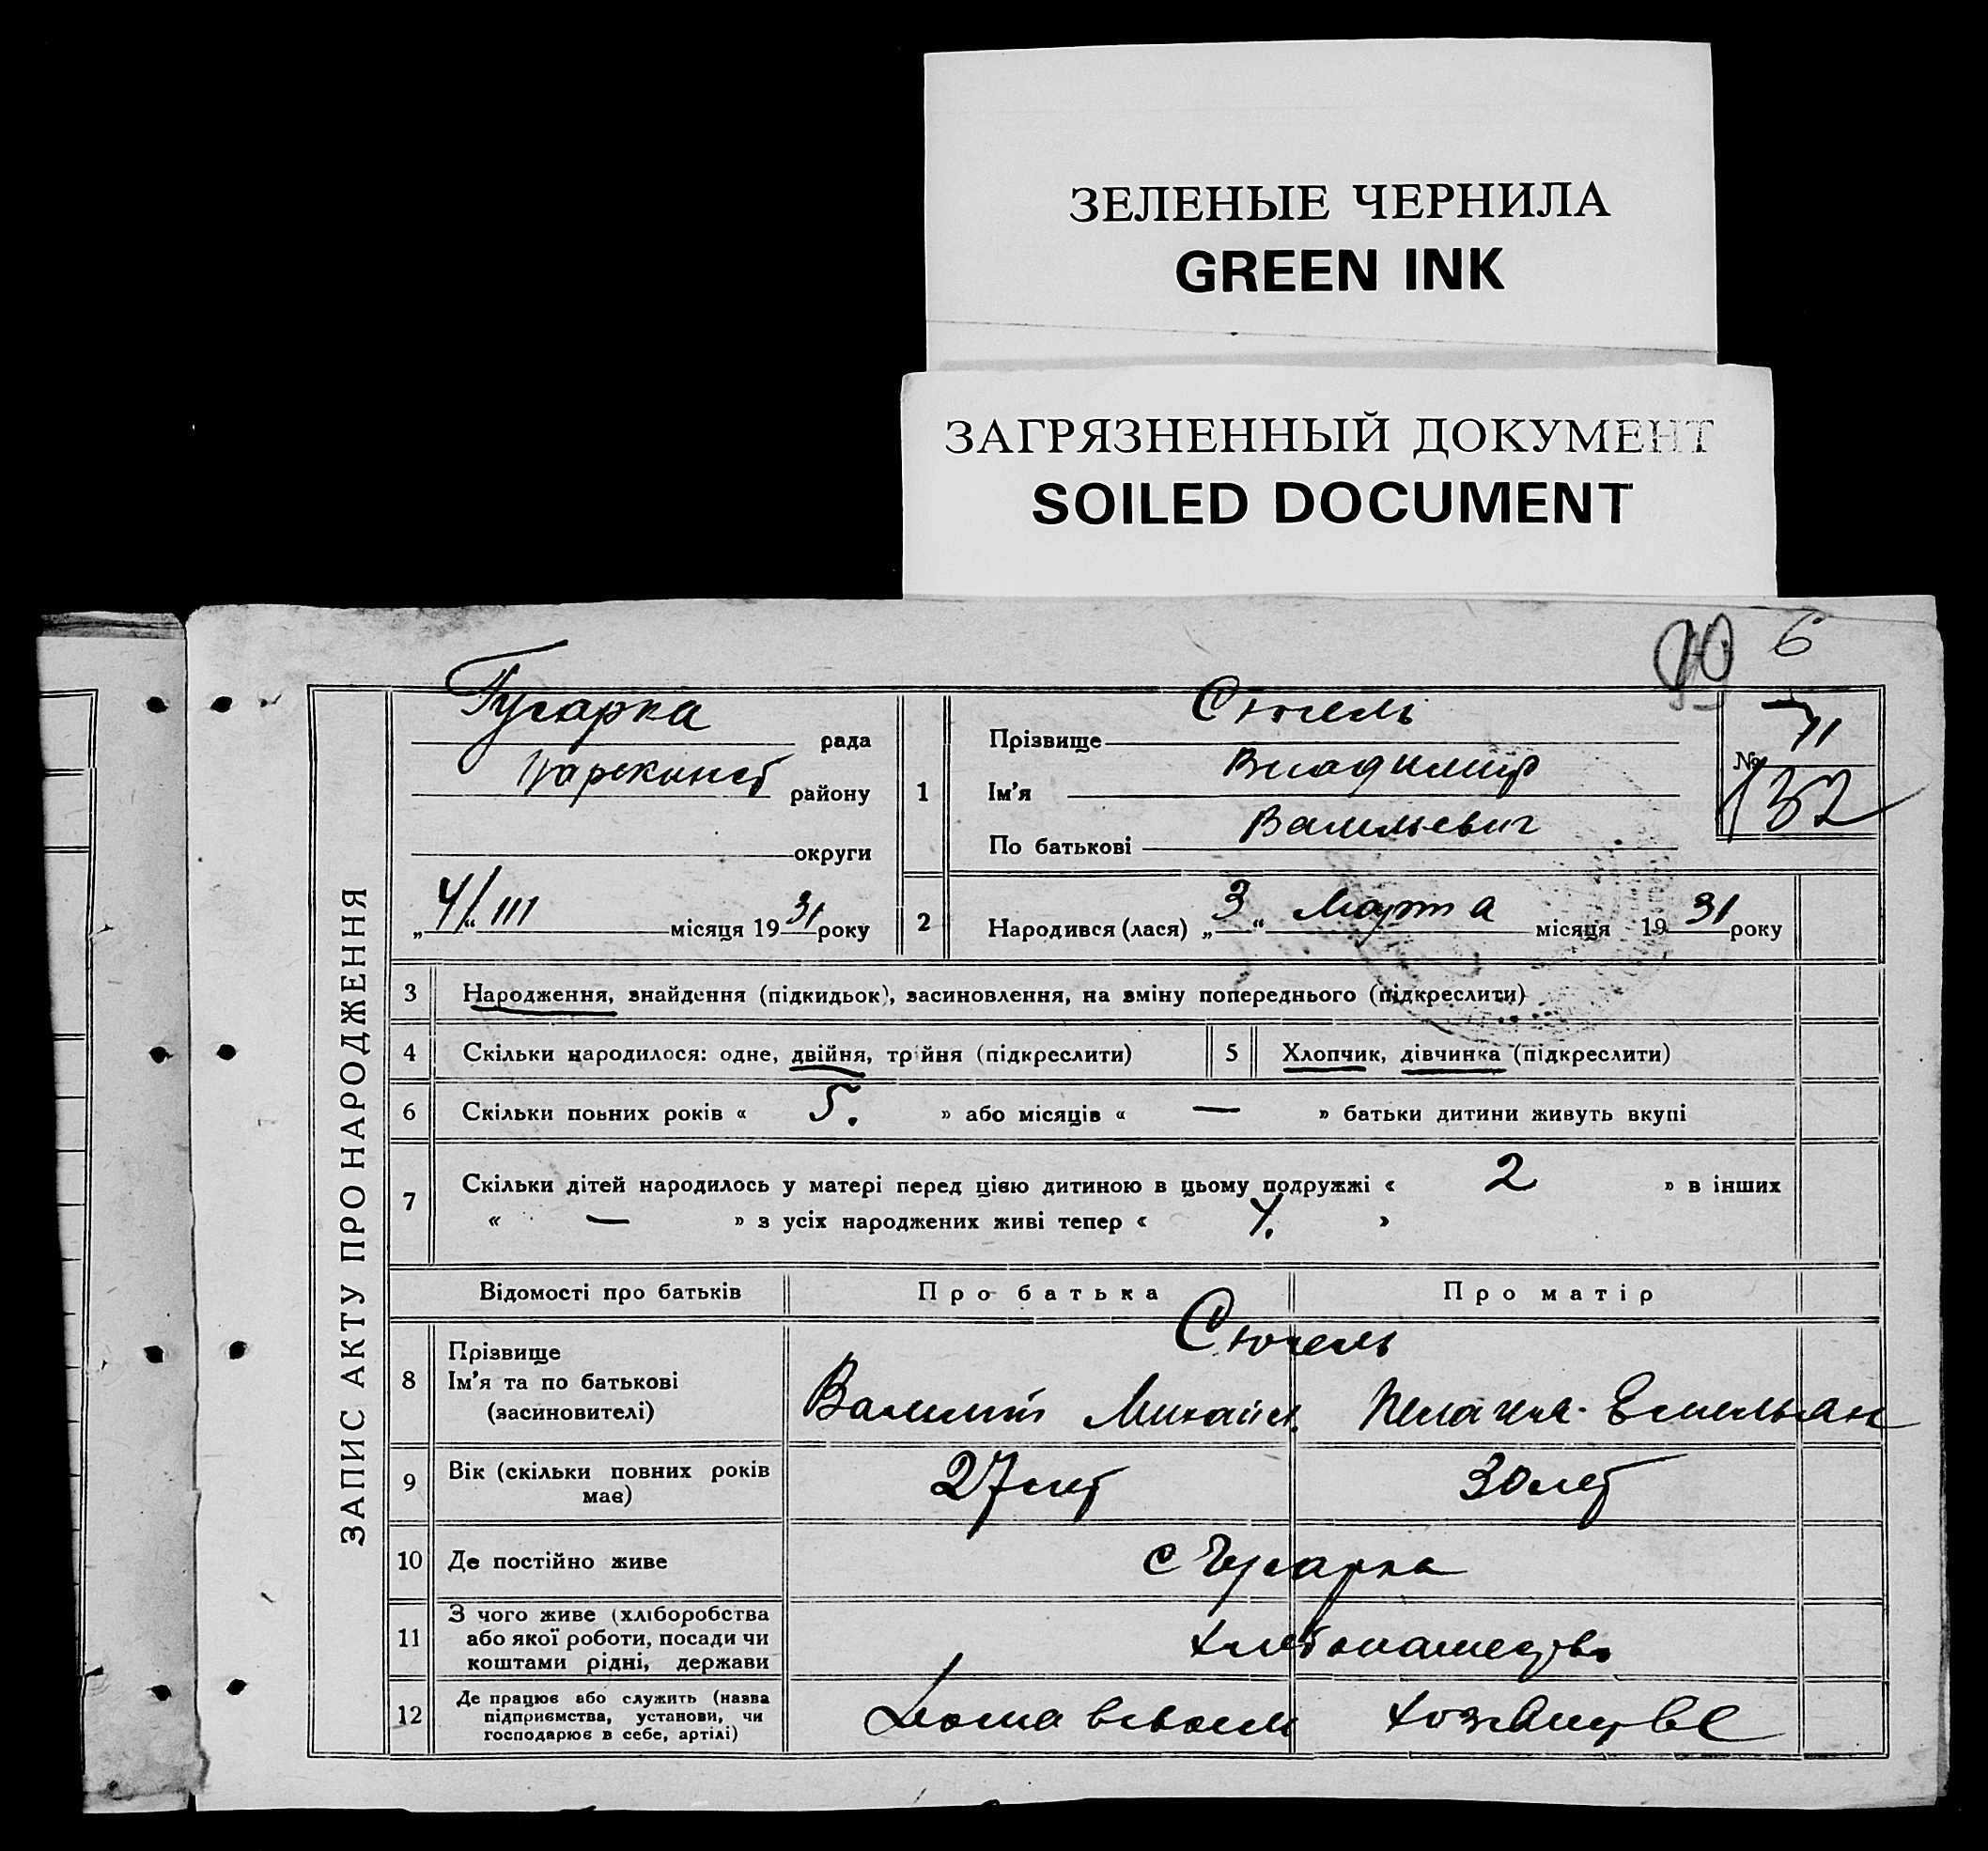 ЗЕЛЕНЫЕ ЧЕРНИЛА
GREEN INK
ЗАГРЯЗНЕННЫЙ ДОКУМЕНТ
SOILED DOCUMENT
6
ЗАПИС АКТУ ПРО НАРОДЖЕННЯ
Гусарка рада
району
округи
„4/“ III місяця 1931 року
1 Прізвище Сюсель
Ім'я Владимир
По батькові Васильевич
№ 71
132
2 Народився (лася) „3“ Марта місяця 1931 року
3 Народження, знайдення (підкидьок), засиновлення, на зміну попереднього (підкреслити)
4 Скільки народилося: одне, двійня, трійня (підкреслити) 5 Хлопчик, дівчинка (підкреслити)
6 Скільки повних років « 5. » або місяців « — » батьки дитини живуть вкупі
7 Скільки дітей народилось у матері перед цією дитиною в цьому подружжі « 2 » в інших
« — » з усіх народжених живі тепер « 4. »
Відомості про батьків Про батька Про матір
8 Прізвище
Ім'я та по батькові
(засиновителі)
Сюсель
Василий Михайл. Пелагия Емельян
9 Вік (скільки повних років
має)
27 лет 30 лет
10 Де постійно живе с Гусарка
11 З чого живе (хліборобства
або якої роботи, посади чи
коштами рідні, держави
Хлебопашество
12 Де працює або служить (назва
підприємства, установи, чи
господарює в себе, артілі)
Дома в своем хозяистве